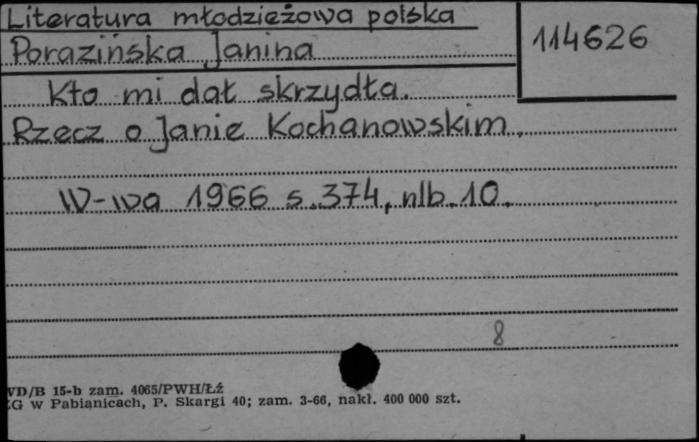 Literatura młodzieżowa polska
114626
Porazińska Janina
Kto mi dał skrzydła.
Rzecz o Janie Kochanowskim.
W-wa 1966 s. 374, nlb. 10.
8
VD/B 15-b zam. 4065/PWH/Łź
G w Pabianicach, P. Skargi 40; zam. 3-66, nakł. 400 000 szt.